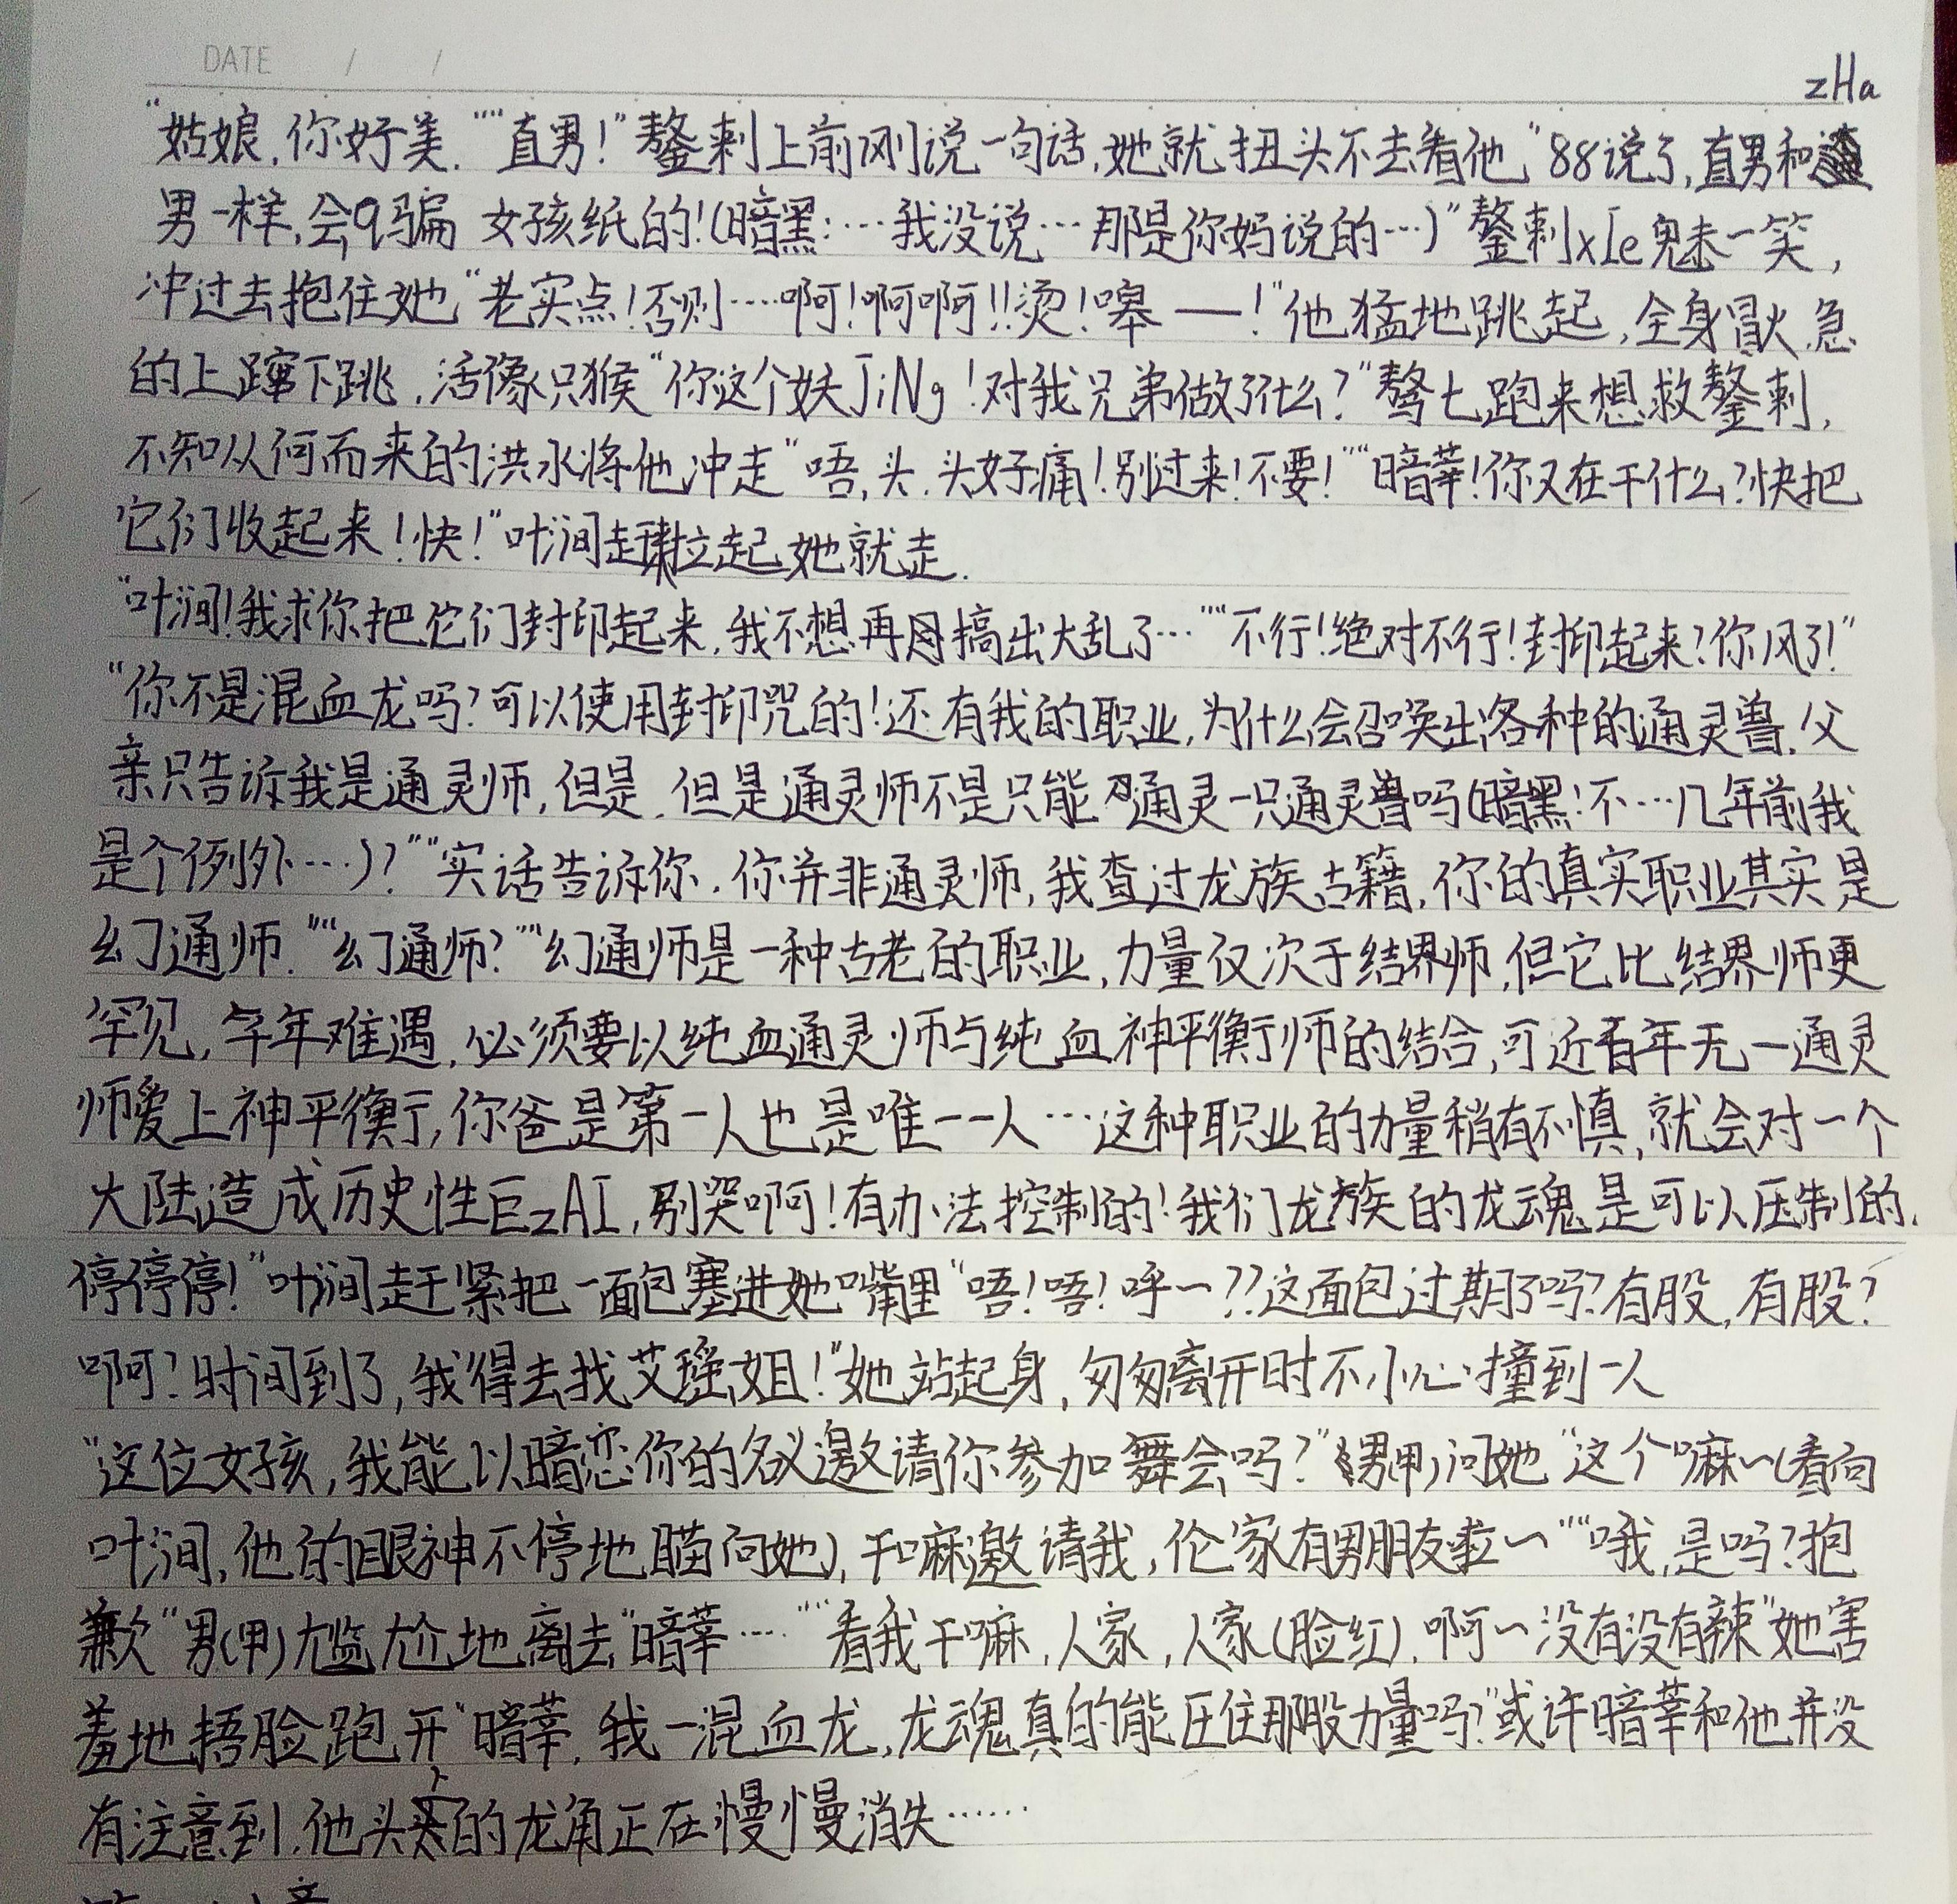 DATE / /
zHa
“姑娘,你好美.”“直男!”鏊刺上前刚说一句话,她就扭头不去看他“88说了,直男和
男一样,会q骗 女孩纸的!(暗黑:…我没说…那是你妈说的…)”鏊刺xIe魅一笑,
冲过去抱住她“老实点!否则……啊!啊啊!!烫!嗥——!”他猛地跳起,全身冒火,急
的上蹿下跳,活像只猴“你这个妖JiNg!对我兄弟做了什么?”鹜七跑来想救鏊刺,
不知从何而来的洪水将他冲走“唔,头,头好痛!别过来!不要!”“暗莘!你又在干什么?快把
它们收起来!快!”叶涧赶拉起她就走.
“叶涧!我求你把它们封印起来,我不想再搞出大乱了…”“不行!绝对不行!封印起来?你风了!”
“你不是混血龙吗?可以使用封印咒的!还有我的职业,为什么会召唤出各种的通灵兽.父
亲只告诉我是通灵师,但是,但是通灵师不是只能召通灵一只通灵兽吗(暗黑:不…几年前我
是个例外…)?”“实话告诉你,你并非通灵师,我查过龙族古籍,你的真实职业其实是
幻通师.”“幻通师?”“幻通师是一种古老的职业,力量仅次于结界师,但它比结界师更
罕见,千年难遇,必须要以纯血通灵师与纯血神平衡师的结合,可近百年无一通灵
师爱上神平衡,你爸是第一人也是唯一一人…这种职业的力量稍有不慎,就会对一个
大陆造成历史性巨zAI,别哭啊!有办法控制的!我们龙族的龙魂是可以压制的,
停停停!”叶涧赶紧把一面包塞进她嘴里“唔!唔!呼~??这面包过期了吗?有股,有股?
啊?时间到了,我得去找艾瑶姐!”她站起身,匆匆离开时不小心撞到一人
“这位女孩,我能以暗恋你的名义邀请你参加舞会吗?”(男甲)问她“这个嘛~(看向
叶涧,他的眼神不停地瞄向她),干嘛邀请我,伦家有男朋友啦~”“哦,是吗?抱
歉”男(甲)尴尬地离去“暗莘…”“看我干嘛,人家,人家(脸红),啊~没有没有辣”她害
羞地捂脸跑开“暗莘,我一混血龙,龙魂真的能压住那股力量吗?”或许暗莘和他并没
有注意到,他头上的龙角正在慢慢消失……